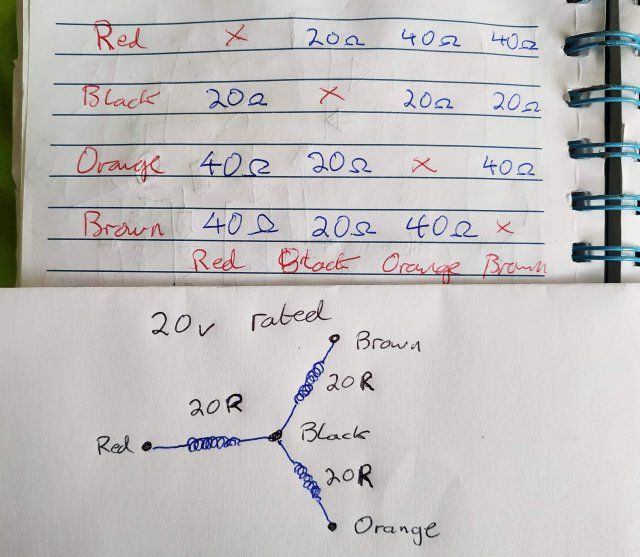 Red × 20Ω 40Ω 40Ω
Black 20Ω × 20Ω 20Ω
Orange 40Ω 20Ω × 40Ω
Brown 40Ω 20Ω 40Ω ×
Red Black Orange Brown
20v rated
Brown
20R
20R
Red
Black
20R
Orange